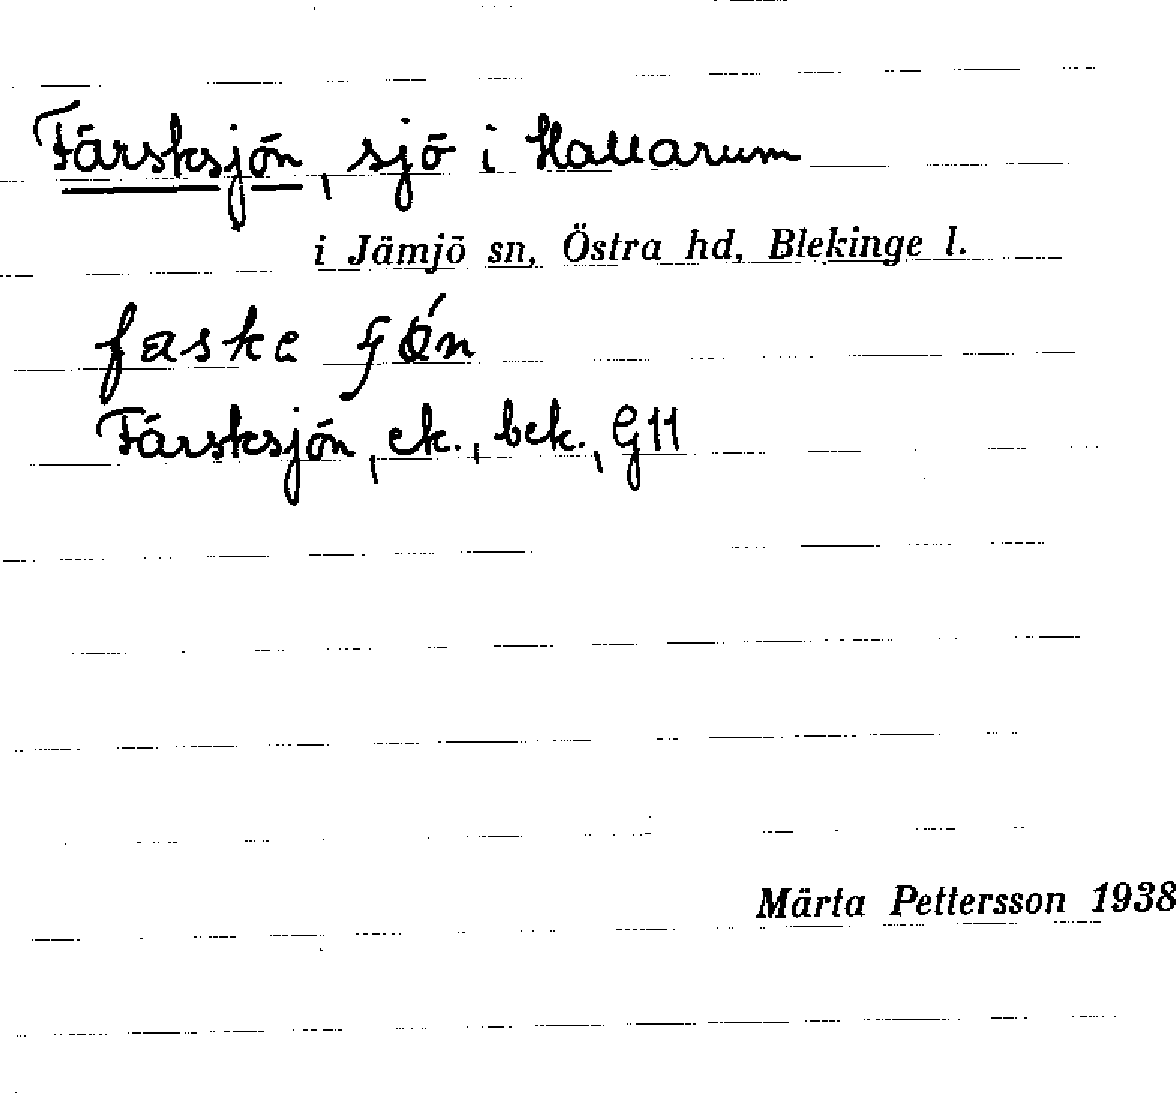 Färsksjön, sjö i Hallarum
i Jämjö sn, Östra hd, Blekinge l.
Färsksjön, ek., bek., G11
Märta Pettersson 1938